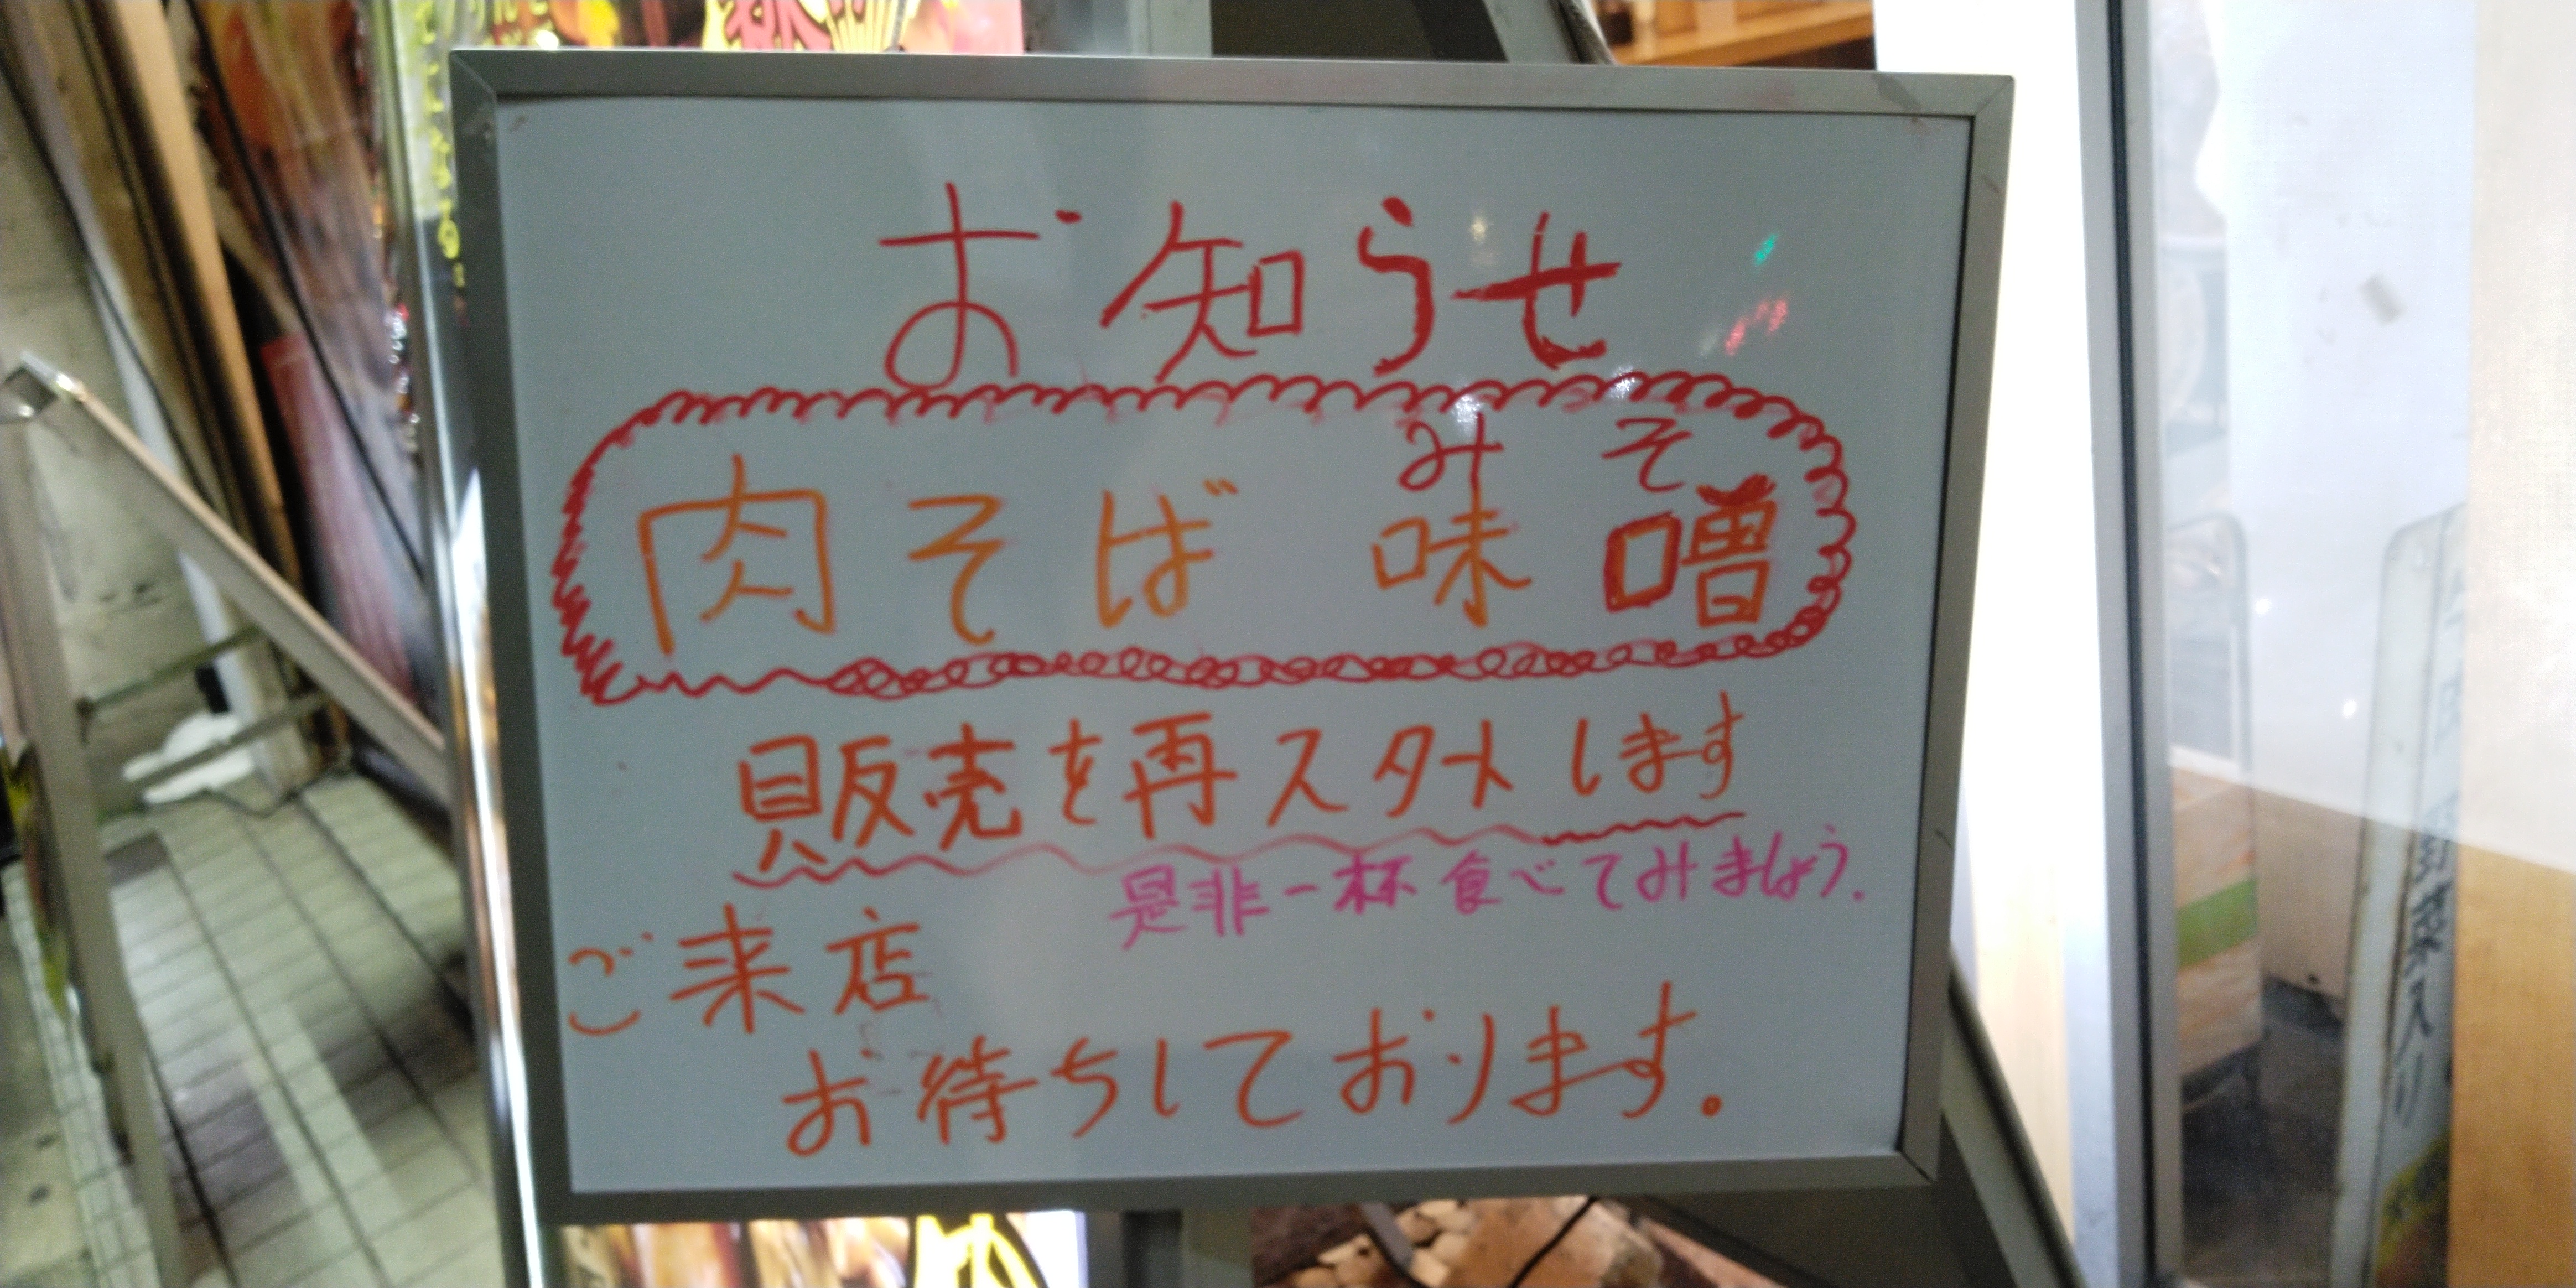 お知らせ
みそ
肉そば 味噌
販売を再スタートします
是非一杯食べてみましょう.
ご来店
お待ちしております。
菜入り